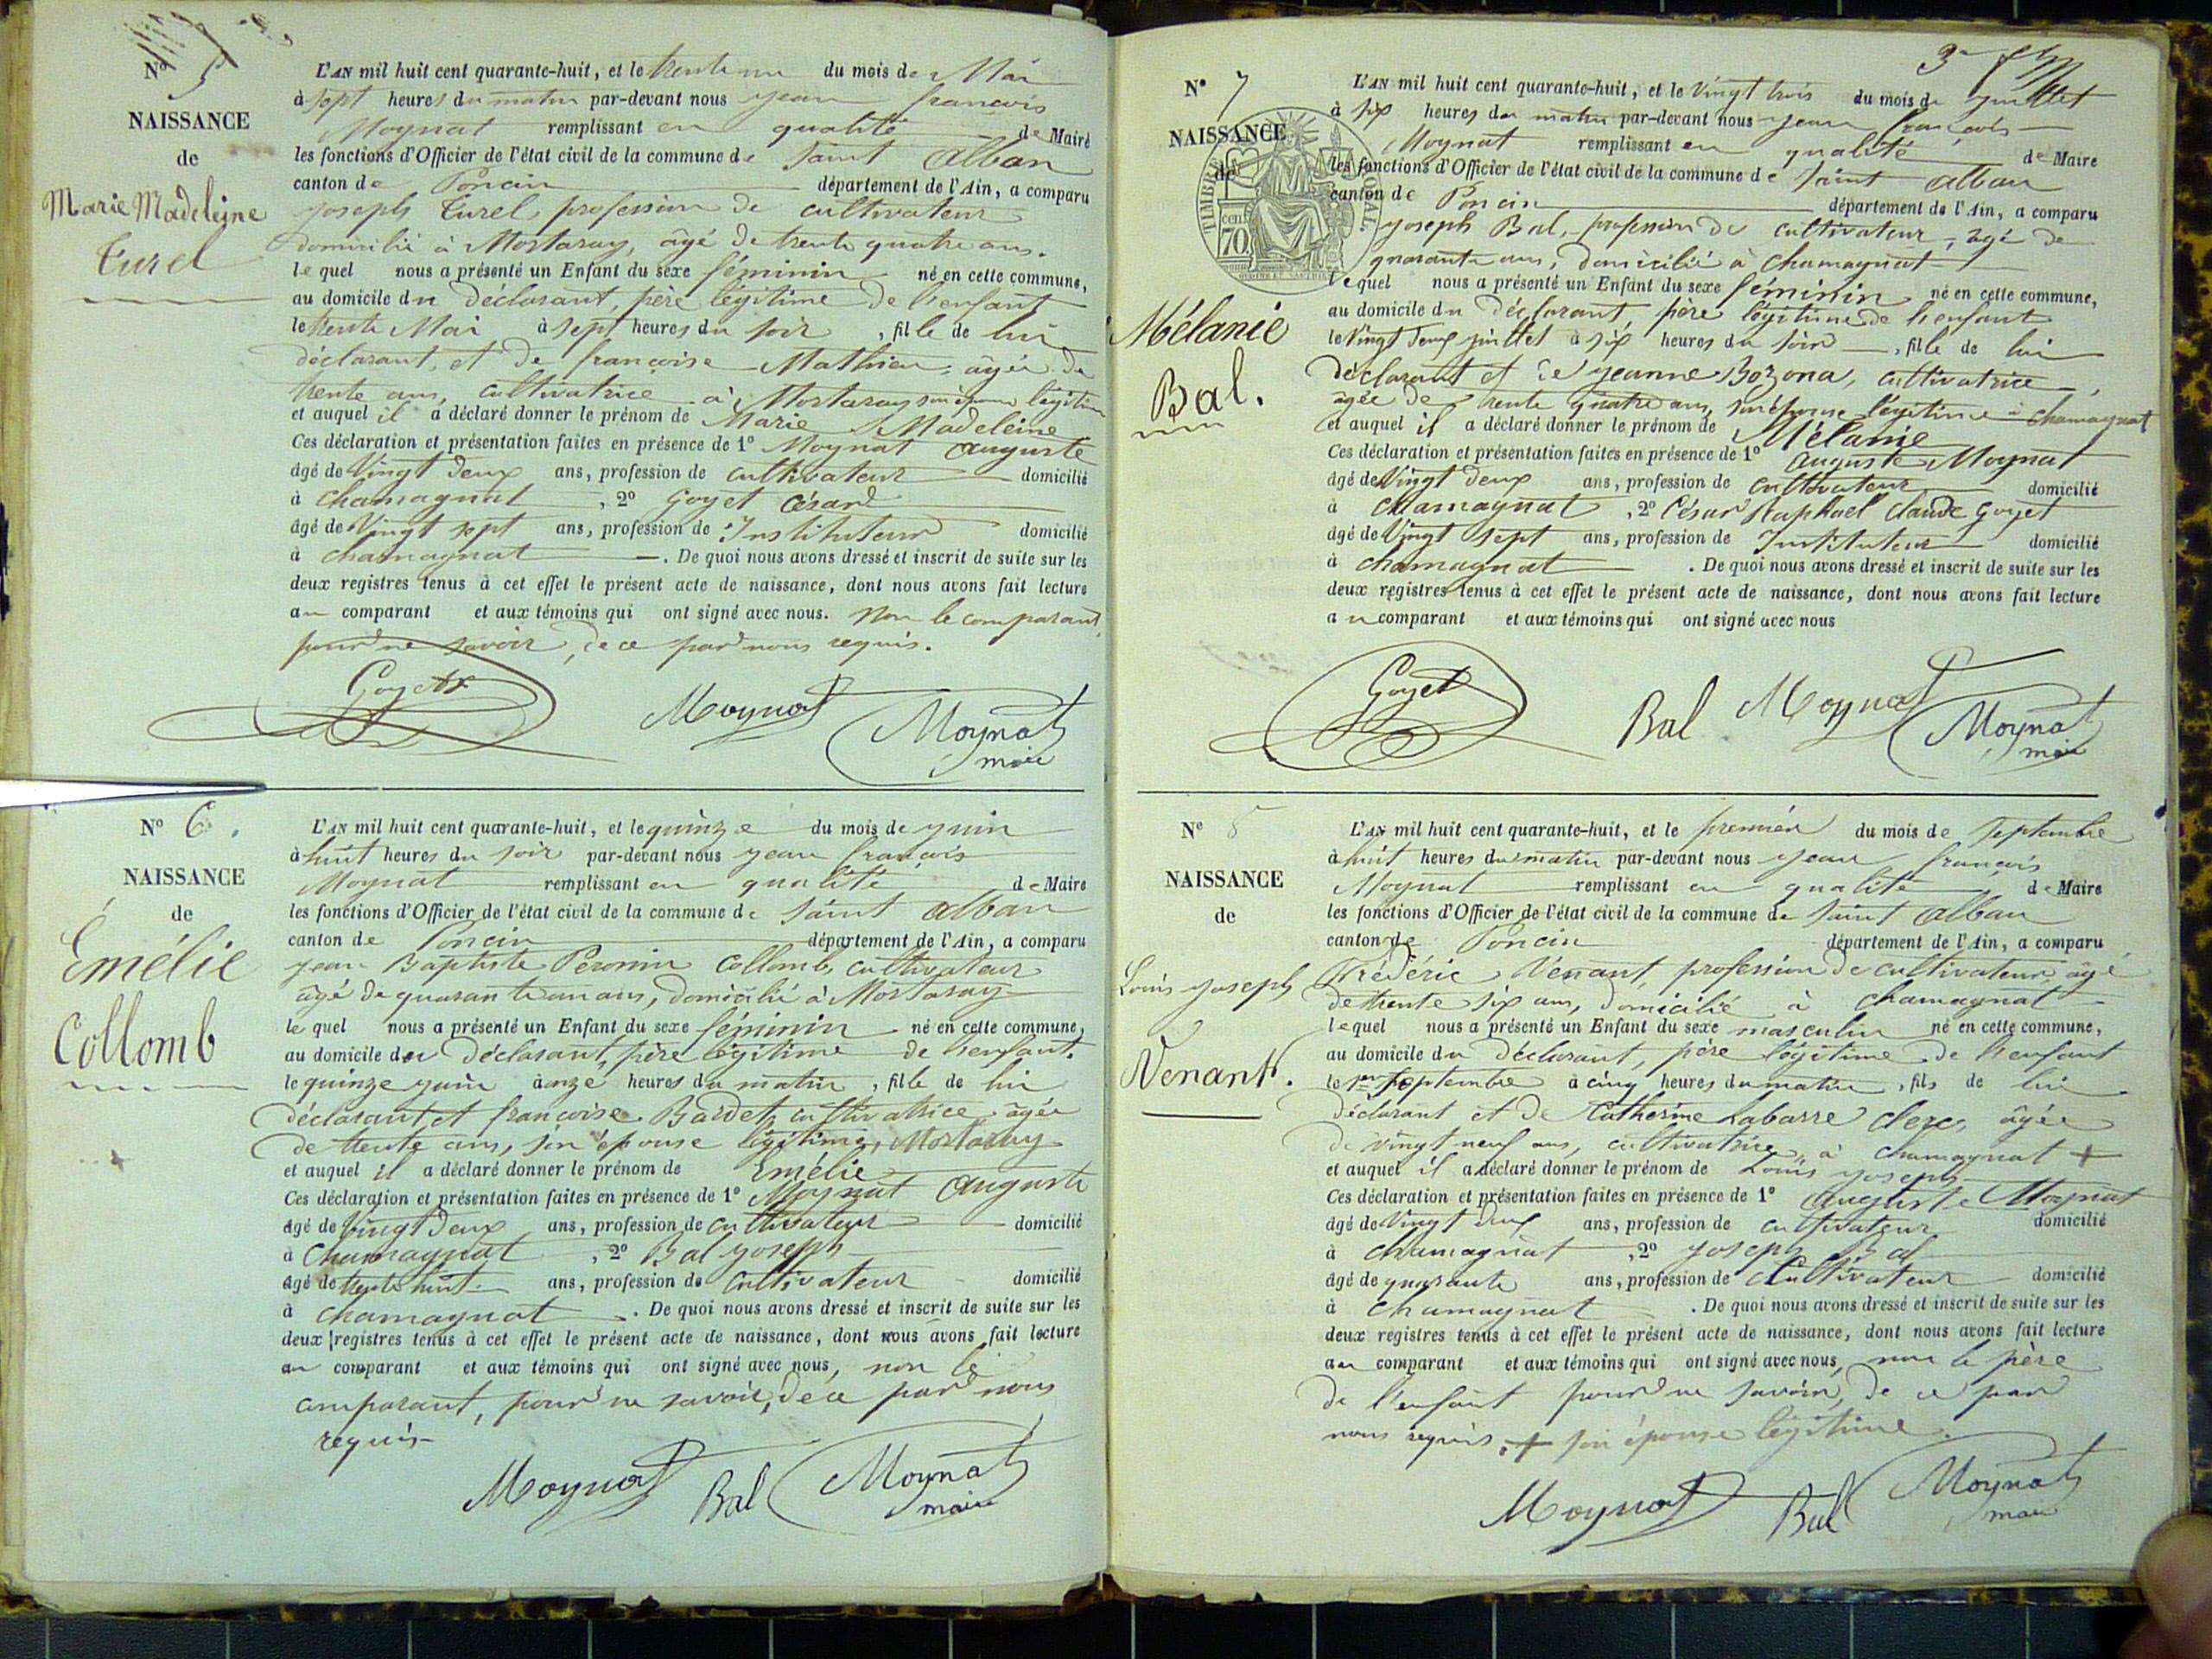 Nº 5
NAISSANCE
de
Marie Madeleine
Turel
L'AN mil huit cent quarante-huit, et le trente un du mois de Mai
à sept heures du matin par-devant nous jean françois
Moynat remplissant en qualité de Maire
les fonctions d'Officier de l'état civil de la commune de saint alban
canton de Poncin département de l'Ain, a comparu
joseph Turel, profession de cultivateur
domicilié à Mortaray, âgé de trente quatre ans.
lequel nous a présenté un Enfant du sexe féminin né en cette commune,
au domicile du Déclarant, père légitime de l'enfant
le trente Mai à sept heures du soir, fille de lui
déclarant, et de françoise Mathieu, âgée de
trente ans, cultivatrice à Mortaray son épouse légitime
et auquel il a déclaré donner le prénom de Marie Madeleine
Ces déclaration et présentation faites en présence de 1º Moynat auguste
âgé de Vingt deux ans, profession de cultivateur domicilié
à chamagnat, 2º Goyet César
âgé de Vingt sept ans, profession de Instituteur domicilié
à chamagnat. De quoi nous avons dressé et inscrit de suite sur les
deux registres tenus à cet effet le présent acte de naissance, dont nous avons fait lecture
au comparant et aux témoins qui ont signé avec nous. non le comparant,
pour ne savoir, de ce par nous requis.
Goyet Moynat Moynat
maire
Nº 6.
NAISSANCE
de
Emélie
Collomb
L'AN mil huit cent quarante-huit, et le quinze du mois de juin
à huit heures du soir par-devant nous jean françois
Moynat remplissant en qualité de Maire
les fonctions d'Officier de l'état civil de la commune de saint alban
canton de Poncin département de l'Ain, a comparu
jean Baptiste Peronin Collomb, cultivateur
âgé de quarante un ans, domicilié à Mortaray
lequel nous a présenté un Enfant du sexe féminin né en cette commune,
au domicile du Déclarant, père légitime de l'enfant.
le quinze juin à onze heures du matin, fille de lui
déclarant, et françoise Bardet, cultivatrice âgée
de trente ans, son épouse légitime, Mortaray
et auquel il a déclaré donner le prénom de Emélie
Ces déclaration et présentation faites en présence de 1º Moynat auguste
âgé de vingt deux ans, profession de cultivateur domicilié
à Chamagnat, 2º Bal joseph
âgé de trente huit ans, profession de Cultivateur domicilié
à chamagnat. De quoi nous avons dressé et inscrit de suite sur les
deux registres tenus à cet effet le présent acte de naissance, dont nous avons fait lecture
au comparant et aux témoins qui ont signé avec nous, non le
comparant, pour ne savoir, de ce par nous
requis
Moynat Bal Moynat
maire
3e
Nº 7
NAISSANCE
de
Mélanie
Bal.
TIMBRE
cent. 70
L'AN mil huit cent quarante-huit, et le Vingt trois du mois de juillet
à six heures du matin par-devant nous jean françois
Moynat remplissant en qualité de Maire
les fonctions d'Officier de l'état civil de la commune de saint alban
canton de Poncin département de l'Ain, a comparu
joseph Bal, profession de cultivateur, âgé de
quarante ans, domicilié à chamagnat
lequel nous a présenté un Enfant du sexe féminin né en cette commune,
au domicile du Déclarant père légitime de l'enfant
le Vingt deux juillet à six heures du soir, fille de lui
déclarant et de jeanne Bozona, cultivatrice,
âgée de trente quatre ans, son épouse légitime à chamagnat
et auquel il a déclaré donner le prénom de Mélanie
Ces déclaration et présentation faites en présence de 1º auguste Moynat
âgé de Vingt deux ans, profession de cultivateur domicilié
à chamagnat, 2º César Raphael Claude Goyet
âgé de Vingt sept ans, profession de Instituteur domicilié
à chamagnat. De quoi nous avons dressé et inscrit de suite sur les
deux registres tenus à cet effet le présent acte de naissance, dont nous avons fait lecture
au comparant et aux témoins qui ont signé avec nous
Goyet Bal Moynat Moynat
maire
Nº 8
NAISSANCE
de
Louis joseph
Venant.
L'AN mil huit cent quarante-huit, et le premier du mois de septembre
à huit heures du matin par-devant nous jean françois
Moynat remplissant en qualité de Maire
les fonctions d'Officier de l'état civil de la commune de saint alban
canton de Poncin département de l'Ain, a comparu
Frédéric Venant, profession de cultivateur, âgé
de trente six ans, domicilié à chamagnat
lequel nous a présenté un Enfant du sexe masculin né en cette commune,
au domicile du Déclarant, père légitime de l'enfant
le 1er septembre à cinq heures du matin, fils de lui
déclarant et de Catherine Labarre Clerc, âgée
de vingt neuf ans, cultivatrice, à chamagnat +
et auquel il a déclaré donner le prénom de Louis joseph
Ces déclaration et présentation faites en présence de 1º auguste Moynat
âgé de Vingt deux ans, profession de cultivateur domicilié
à chamagnat, 2º joseph Bal
âgé de quarante ans, profession de Cultivateur domicilié
à Chamagnat. De quoi nous avons dressé et inscrit de suite sur les
deux registres tenus à cet effet le présent acte de naissance, dont nous avons fait lecture
au comparant et aux témoins qui ont signé avec nous, non le père
de l'enfant pour ne savoir, de ce par
nous requis. + son épouse légitime.
Moynat Bal Moynat
maire